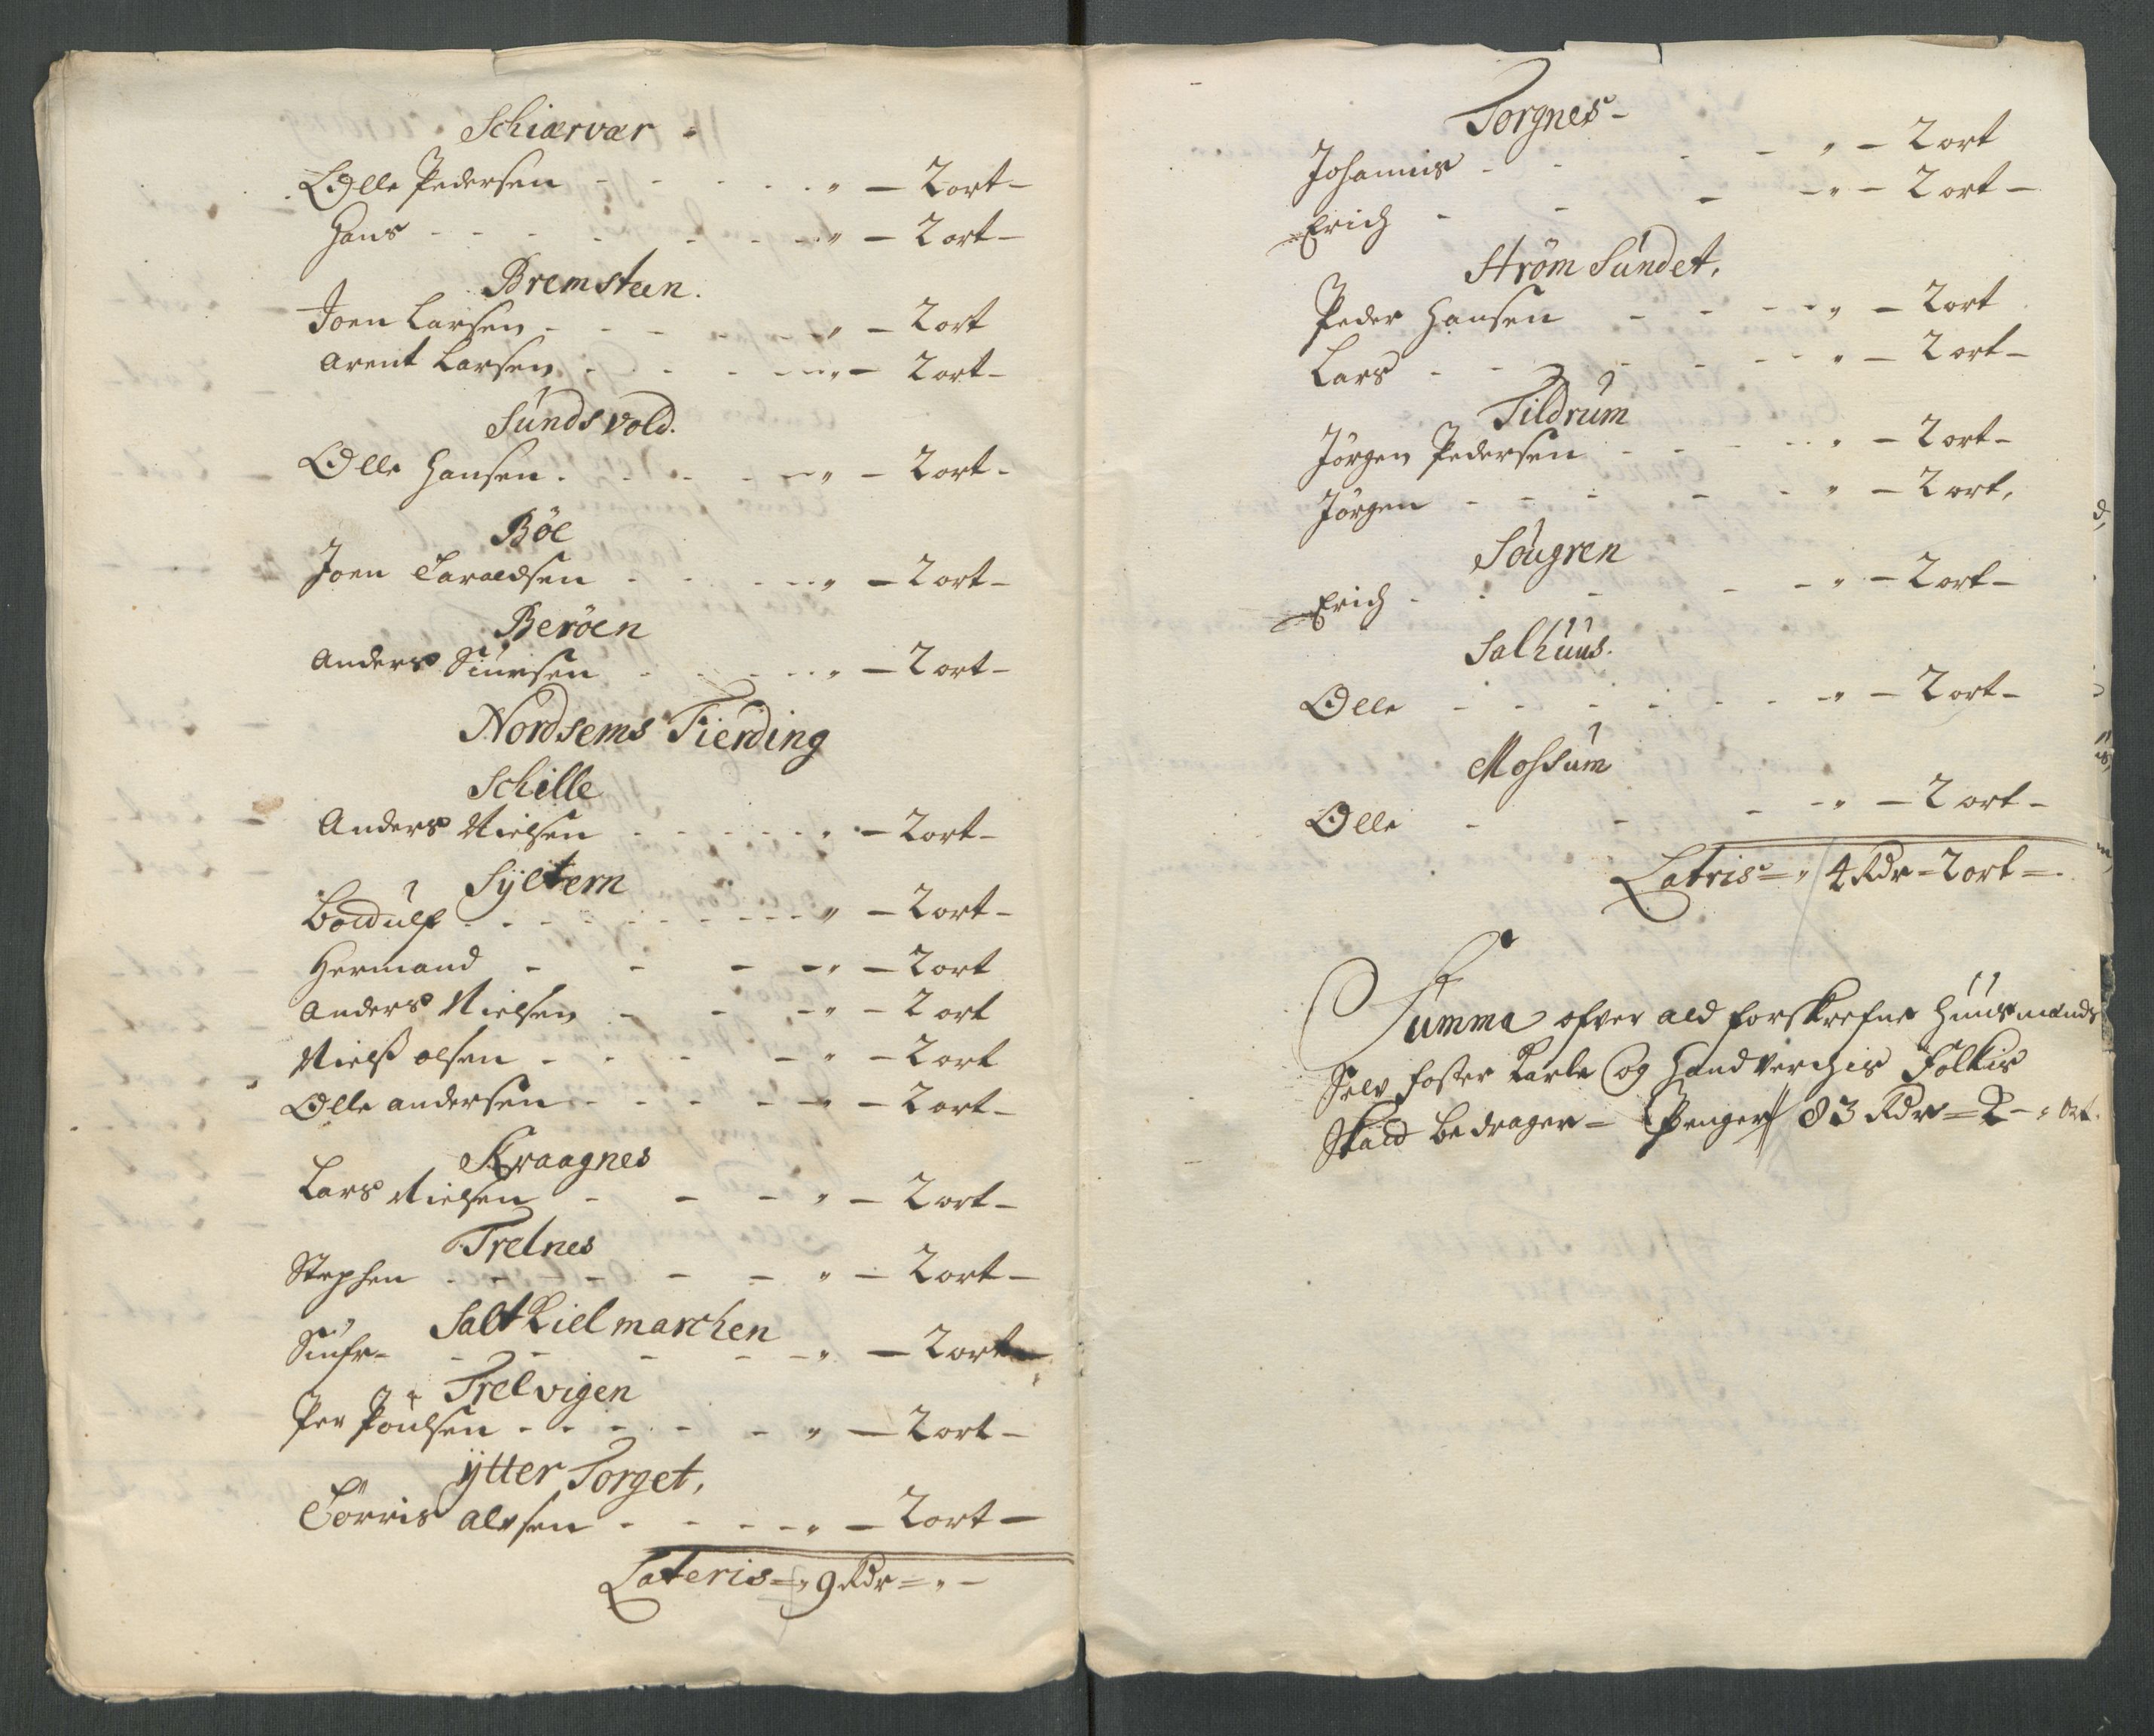 Schiærvær -
Olle Pedersen - - - - - " - 2 ort -
Hans - - - - - - - " - 2 ort -
Bremsteen.
Joen Larsen - - - - " - 2 ort
Arent Larsen - - - - - " - 2 ort -
Sundsvold.
Olle Hansen. - - - - " - 2 ort -
Böe
Joen Taraldsen - - - - - " - 2 ort -
Beröen
Anders Siursen - - - - - " - 2 ort -
Nordsems Fierding
Schille
Anders Nielsen - - - - - - " - 2 ort -
Sÿltern
Boldulf - - - - - - - - - " - 2 ort -
Hermand - - - - " - 2 ort
Anders Nielsen - - - " - 2 ort
Nielß olsen - - - - " - 2 ort
Olle andersen - - - - - " - 2 ort -
Kraagnes
Lars Nielsen - - - " - 2 ort -
Trelnes
Stephen - - - - - " - 2 ort -
Saltkielmarchen
Siufr - - - - - - " - 2 ort -
Trelvigen
Per Poulsen - - - - - " - 2 ort -
ÿtter Torget,
Törris Alesen - - - - " - 2 ort -
Lateris = " 9 Rdr = " -
Torgnes -
Johannis - - - - " - 2 ort
Erich - - - - " - 2 ort -
Ström Sundet,
Peder Hansen - - - - " - 2 ort
Lars - - - - - - " - 2 ort -
Tildrum
Jörgen Pedersen - - - - - " - 2 ort -
Jörgen - - - - - " - 2 ort,
Sougren
Erich - - - - - " - 2 ort -
Salhuus.
Olle - - - - - - - " - 2 ort -
Mossum
Olle - - - - " - 2 ort -
Latris = " 4 Rdr = 2 ort =.
Summa ofver ald forskrefne Huusmænds
Selv foster Karle og Handverchis Folkis
Skatt bedrager = Penger 83 Rdr = 2 - " ort.